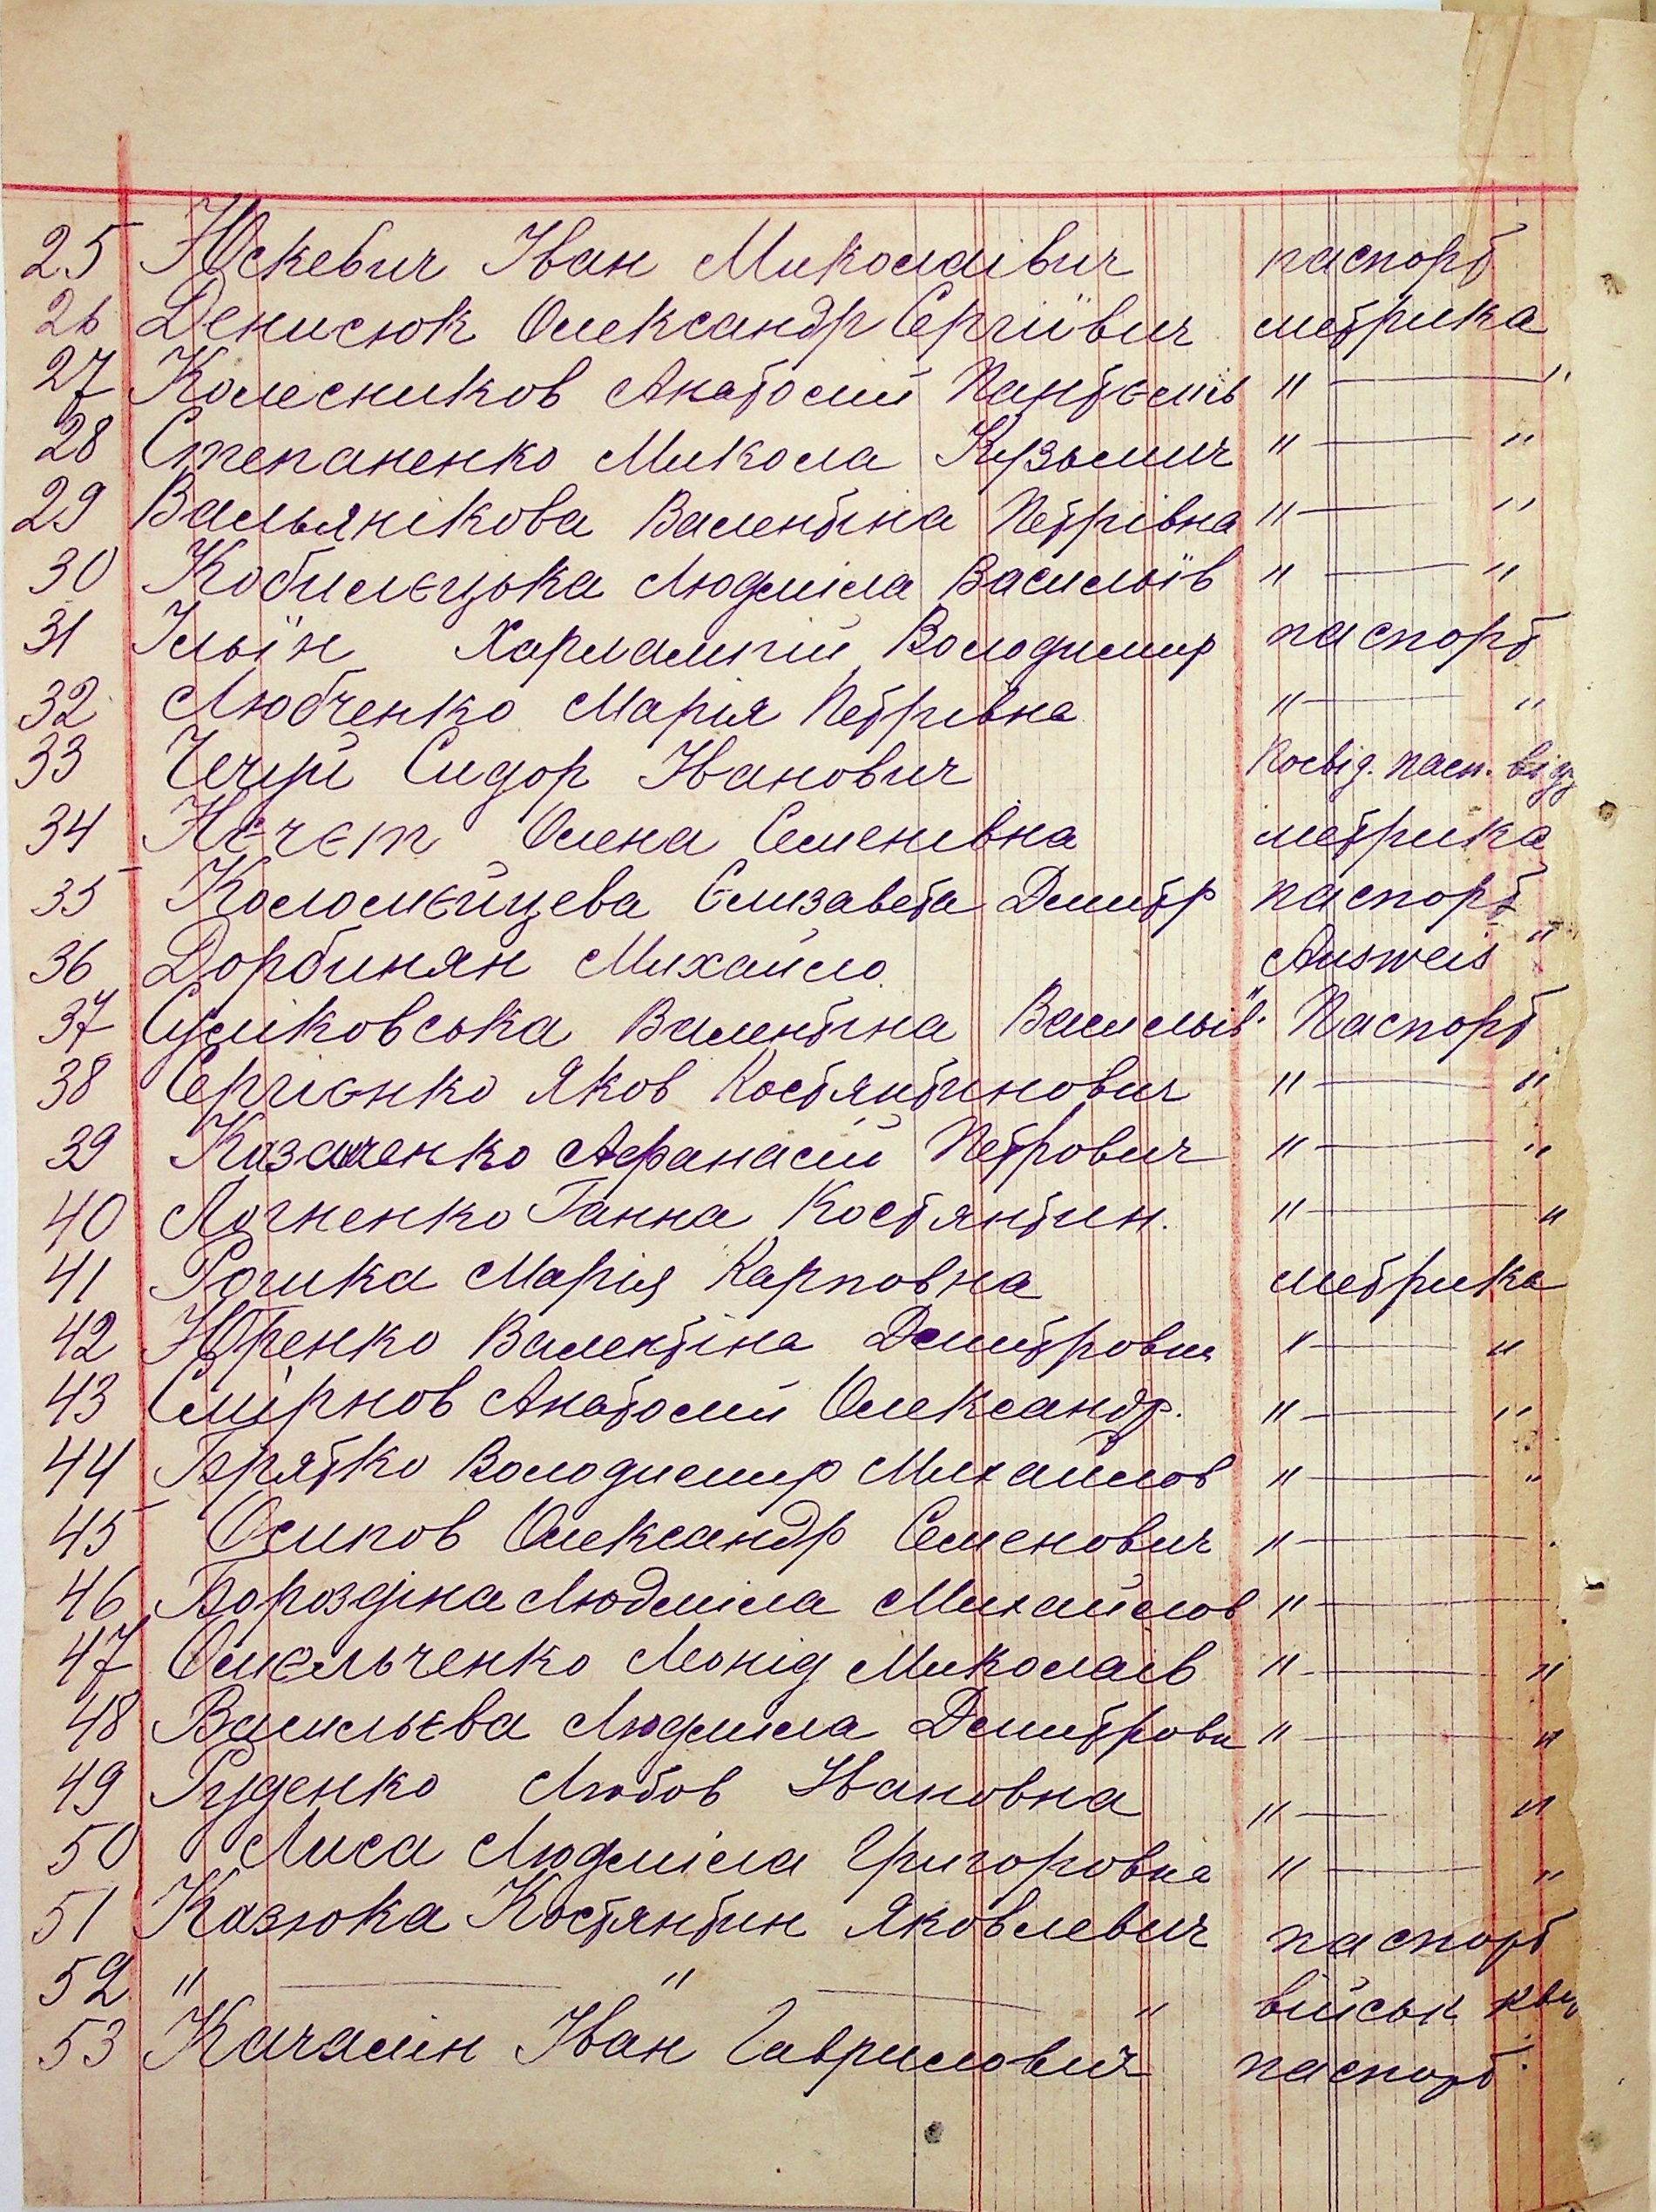 25 Юскевич Іван Миколаівич паспорт
26 Денисюк Олександр Сергіївич метрика
27 Колесников Анатолій Пантєлів " — "
28 Степаненко Микола Кузьмич " — "
29 Вальянікова Валентіна Петрівна " — "
30 Кобилєцька Людміла Васильїв " — "
31 Ільїн Харлампій Володимир паспорт
32 Любченко Марія Петрівна " — "
33 Чечуй Сидор Іванович Посвід. пасп. від
34 Нєчєт Олена Семенівна метрика
35 Коломєйцева Єлизавета Дмитр паспорт
36 Дорбинян Михайло Ausweis "
37 Суліковська Валентіна Васильїв. Паспорт
38 Сергієнко Яков Костянтинович " — "
39 Казаченко Афанасій Петрович " — "
40 Логненко Ганна Костянтин. " — "
41 Рогика Марія Карповна метрика
42 Юренко Валентіна Дмитровна " — "
43 Смірнов Анатолій Олександр. " — "
44 Брятко Володимир Михайлов " — "
45 Осипов Олександр Семенович " —
46 Бороздіна Людміла Михайлов " —
47 Омєльченко Леонід Миколаів " — "
48 Васильєва Людміла Дмитровн " — "
49 Руденко Любов Івановна " — "
50 Лиса Людміла Григоровна " — "
51 Казюка Костянтин Яковлевич паспорт
52 " — " — " військ. кв
53 Качалін Іван Гаврилович паспорт.